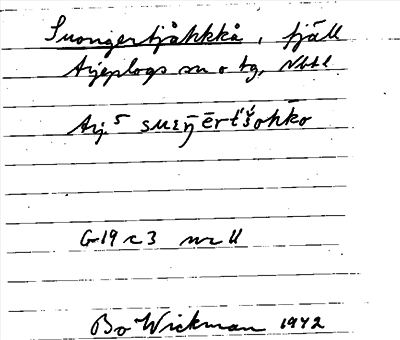 Suongertjåhkkå, fjäll
Arjeplogs sn o tg, Nbtl
Arj. 5 suɛŋ̄ērt́š́ohk̄o
G19 c3 nr 11
Bo Wickman 1942